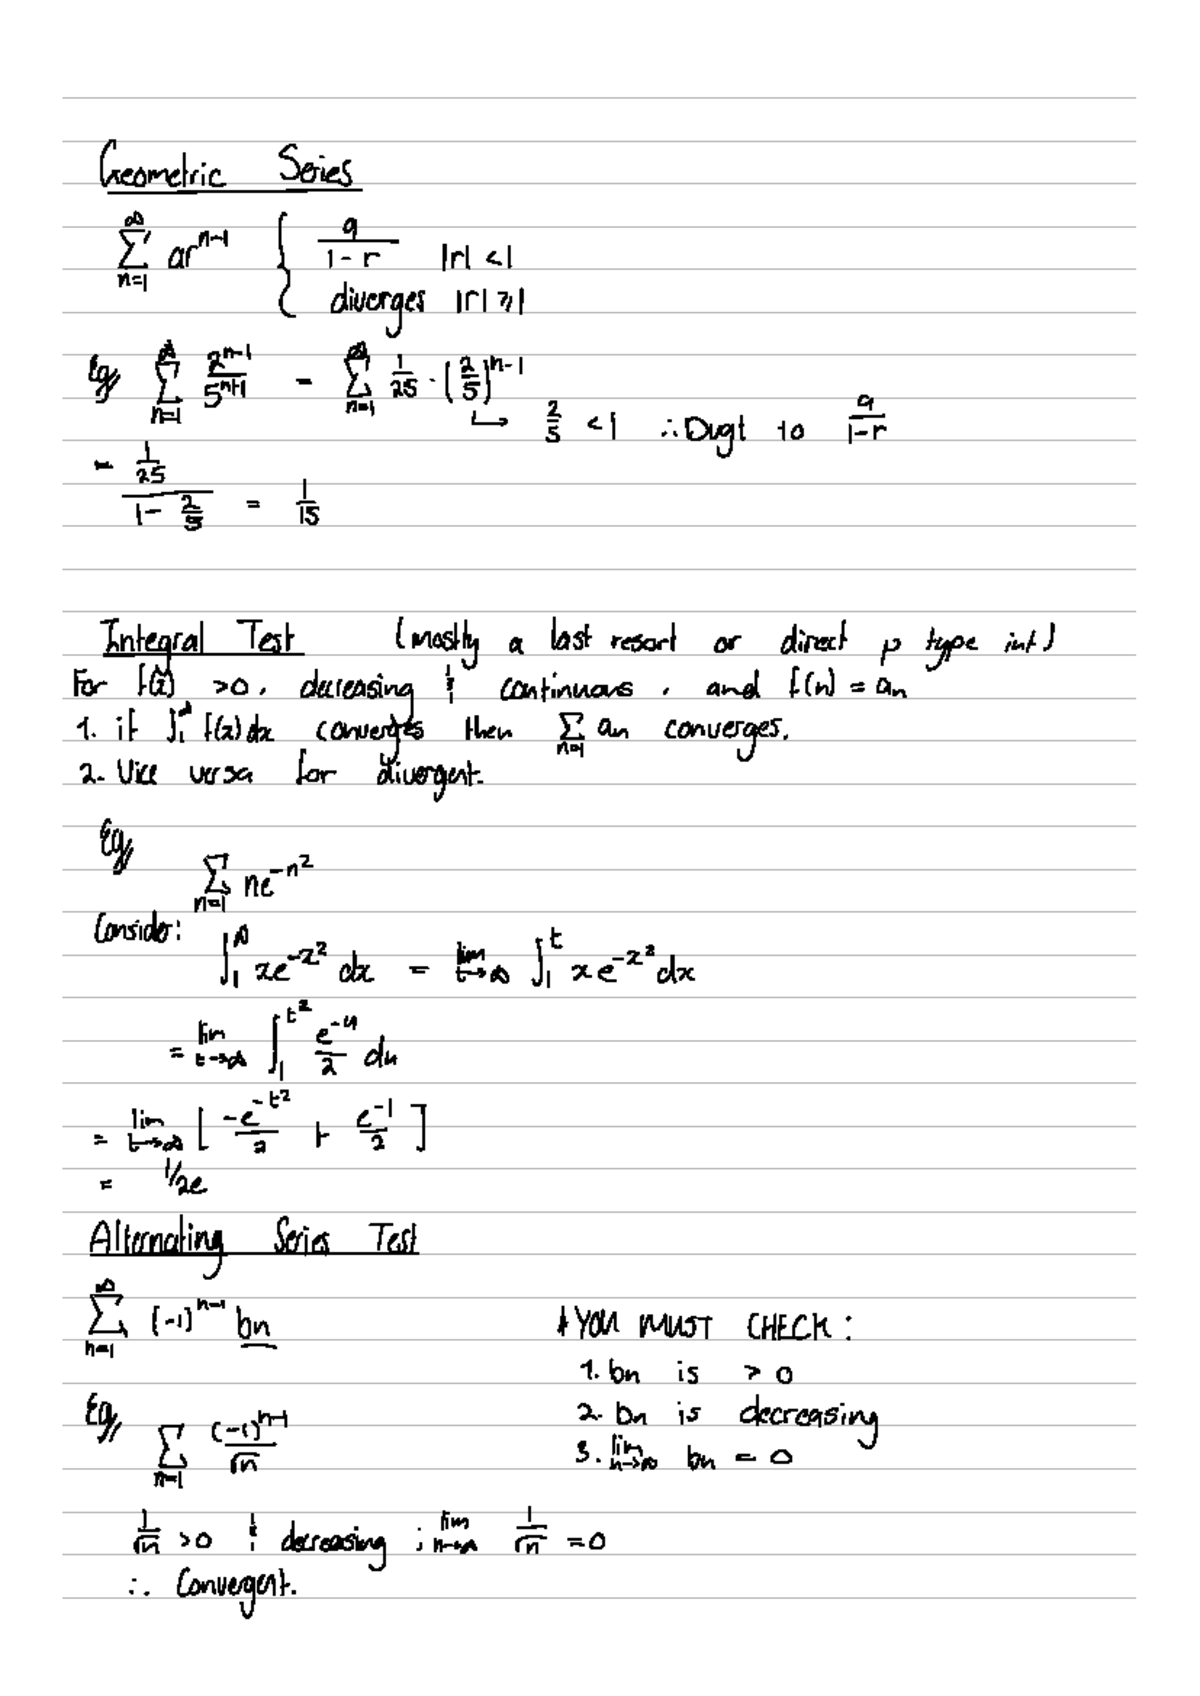 Geometric Series
∞∑n=1 ar^(n-1) { a/(1-r) |r| < 1
diverges |r| ≥ 1
Eg, ∞∑n=1 2^(n-1)/5^(n+1) = ∞∑n=1 1/25 · (2/5)^(n-1)
↳ 2/5 < 1 ∴ Dvgt to a/(1-r)
= (1/25)/(1 - 2/5) = 1/15
Integral Test (mostly a last resort or direct p type int)
For f(x) >0, decreasing & continuous, and f(n) = an
1. if ∫1^∞ f(x)dx converges then ∑n=1 an converges.
2. Vice versa for divergent.
Eg,
∑n=1 ne^(-n^2)
Consider:
∫1^∞ xe^(-x^2) dx = lim t→∞ ∫1^t xe^(-x^2) dx
= lim t→∞ ∫1^(t^2) e^(-u)/2 du
= lim t→∞ [ -e^(-t^2)/2 + e^(-1)/2 ]
= 1/2e
Alternating Series Test
∞∑n=1 (-1)^(n-1) bn
* YOU MUST CHECK:
1. bn is > 0
2. bn is decreasing
3. lim n→∞ bn = 0
Eg, ∑n=1 (-1)^(n-1)/√n
1/√n >0 & decreasing ; lim n→∞ 1/√n = 0
∴ Convergent.